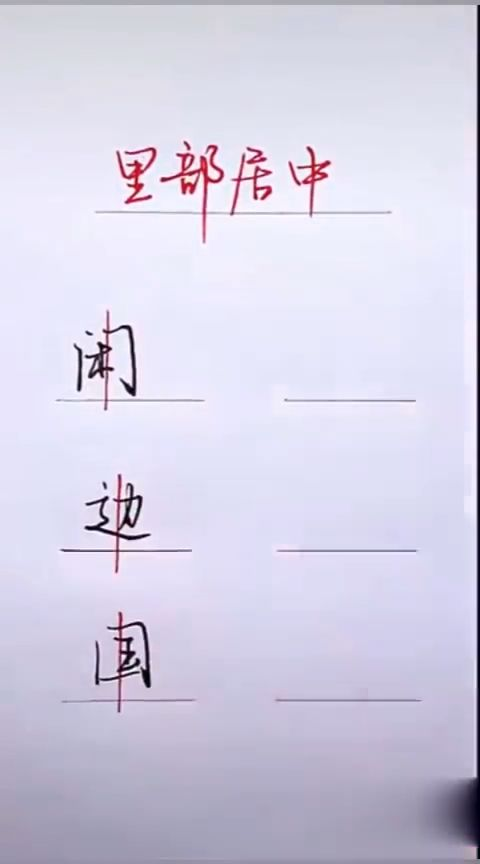 里部居中
闲
边
国